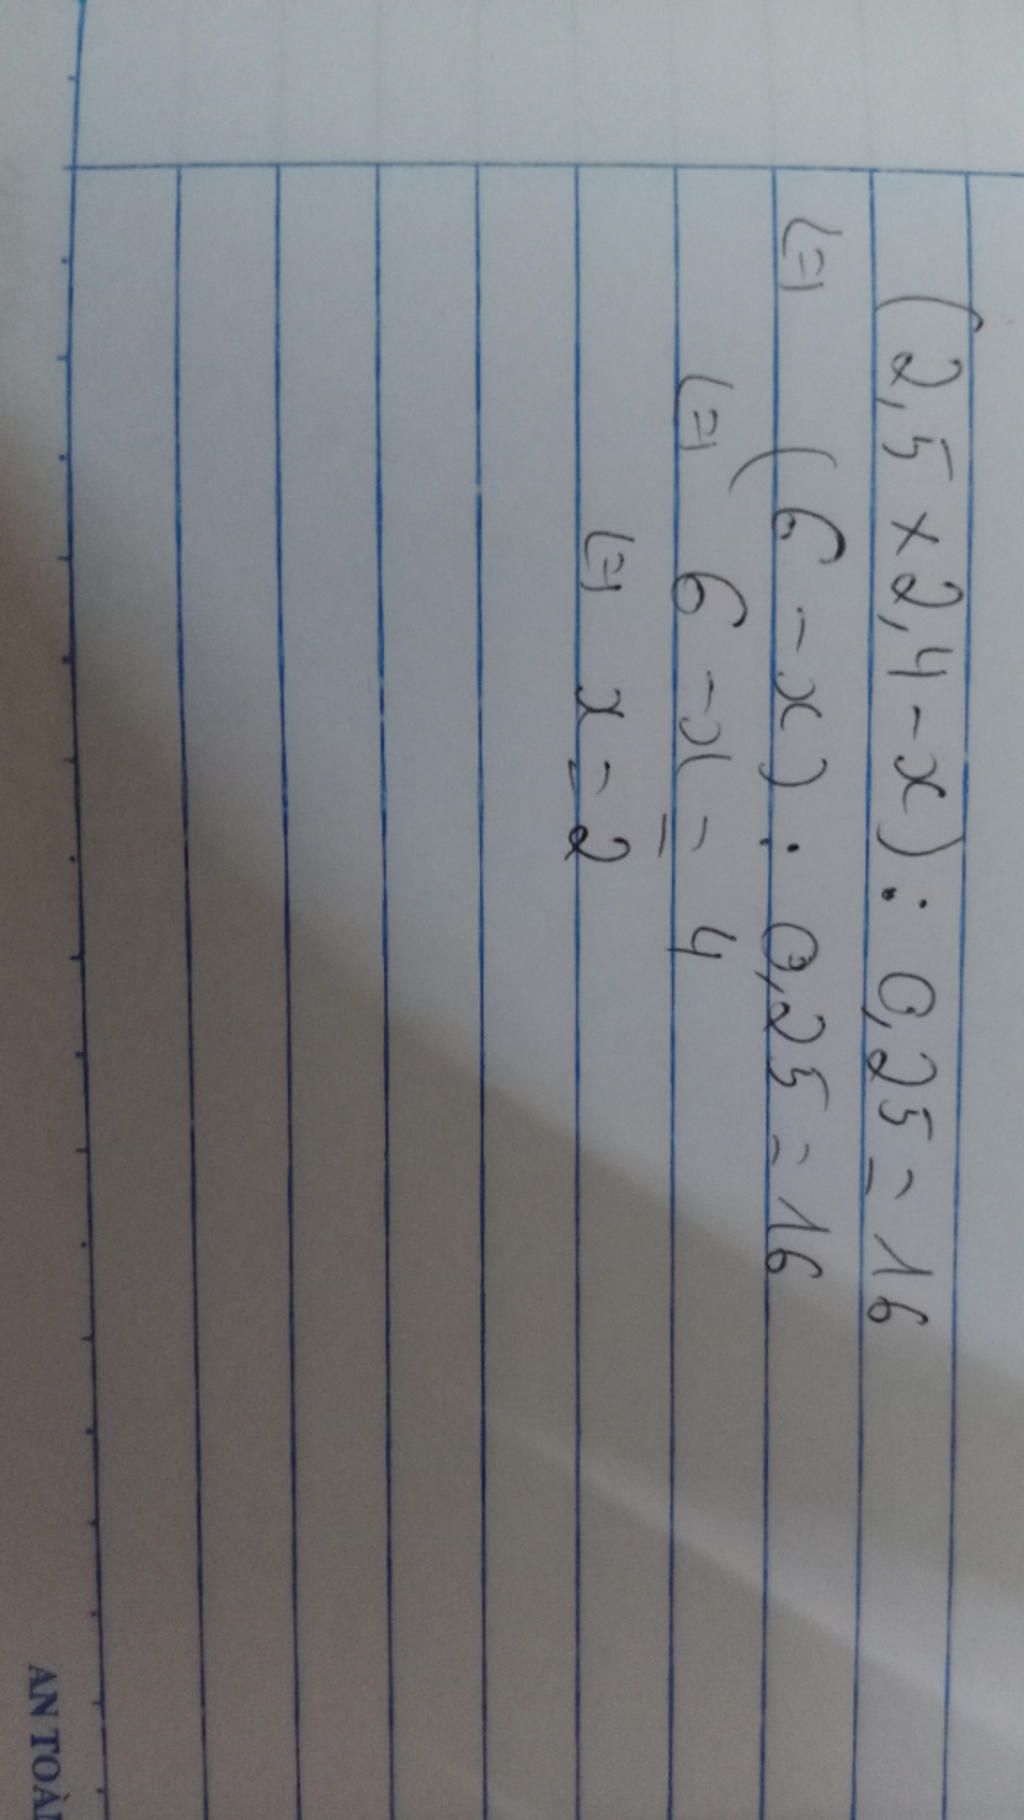 (2,5 × 2,4 - x) : 0,25 = 16
(=) (6 - x) : 0,25 = 16
(=) 6 - x = 4
(=) x = 2
AN TOÀN